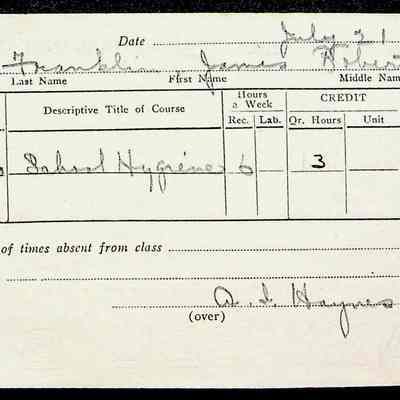 Date July 21
Franklin James Robert
Last Name First Name Middle Nam
Hours a Week CREDIT
Descriptive Title of Course Rec. Lab. Qr. Hours Unit
School Hygiene 6 3
of times absent from class
A. I. Haynes
(over)